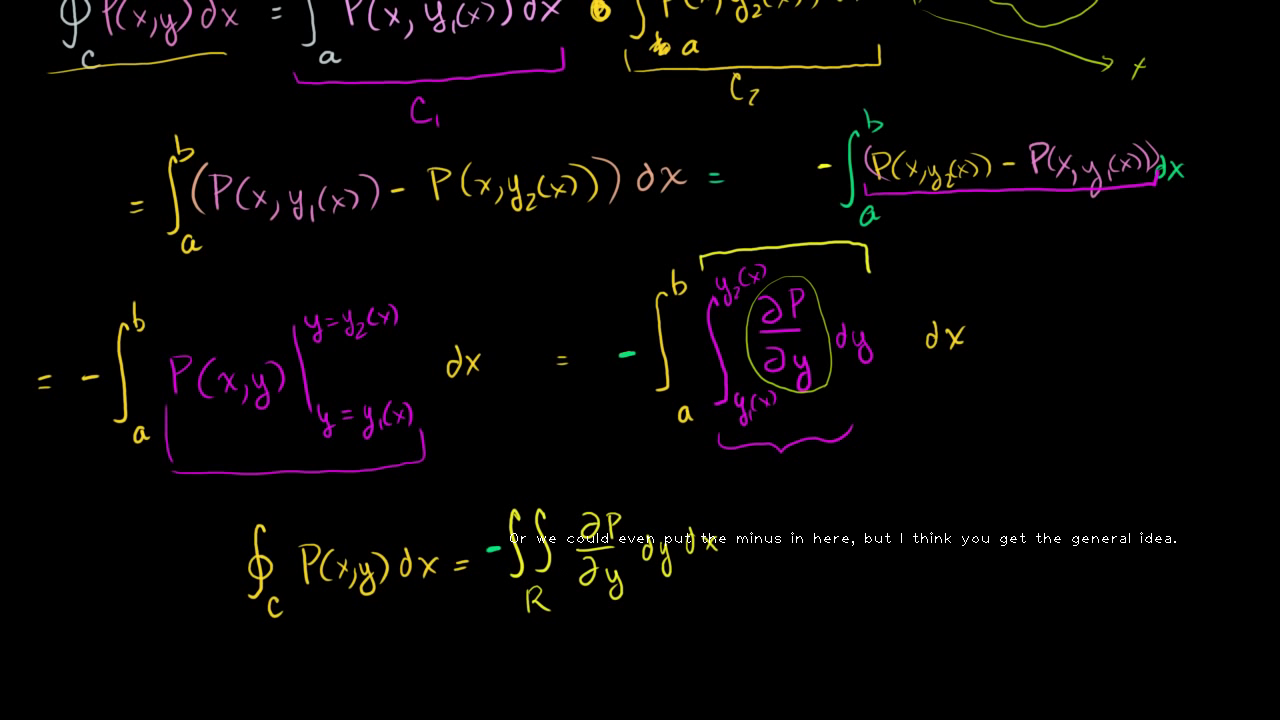 ∮_C P(x,y) dx = ∫_a P(x, y₁(x)) dx ∫_a P(x, y₂(x))
x
C₁
C₂
= ∫_a^b (P(x, y₁(x)) - P(x, y₂(x))) dx = - ∫_a^b (P(x, y₂(x)) - P(x, y₁(x))) dx
= - ∫_a^b P(x,y) |_{y = y₁(x)}^{y = y₂(x)} dx = - ∫_a^b ∫_{y₁(x)}^{y₂(x)} ∂P/∂y dy dx
∮_C P(x,y) dx = - ∬_R ∂P/∂y dy dx
Or we could even put the minus in here, but I think you get the general idea.